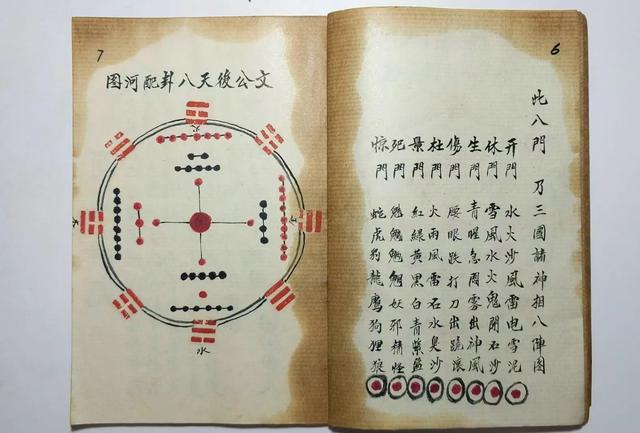 6
此八門乃三國諸神相八陣图
开門 水火沙風雷电雪泥
休門 雪風水火鬼石沙
生門 青腥急雨雾出神風
傷門 腰眼跌打刀出跪滚
杜門 火雨風雷石水臭沙
景門 紅綠黃黑白青紫蓝
死門 妖邪精怪
惊門 蛇虎狗龍鹰狗狸狼
7
文公後天八卦配河图
火
水